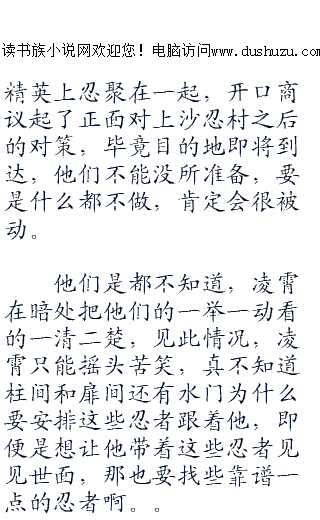 读书族小说网欢迎您！电脑访问www.dushuzu.com
精英上忍聚在一起，开口商
议起了正面对上沙忍村之后
的对策，毕竟目的地即将到
达，他们不能没所准备，要
是什么都不做，肯定会很被
动。
他们是都不知道，凌霄
在暗处把他们的一举一动看
的一清二楚，见此情况，凌
霄只能摇头苦笑，真不知道
柱间和扉间还有水门为什么
要安排这些忍者跟着他，即
便是想让他带着这些忍者见
见世面，那也要找些靠谱一
点的忍者啊。。